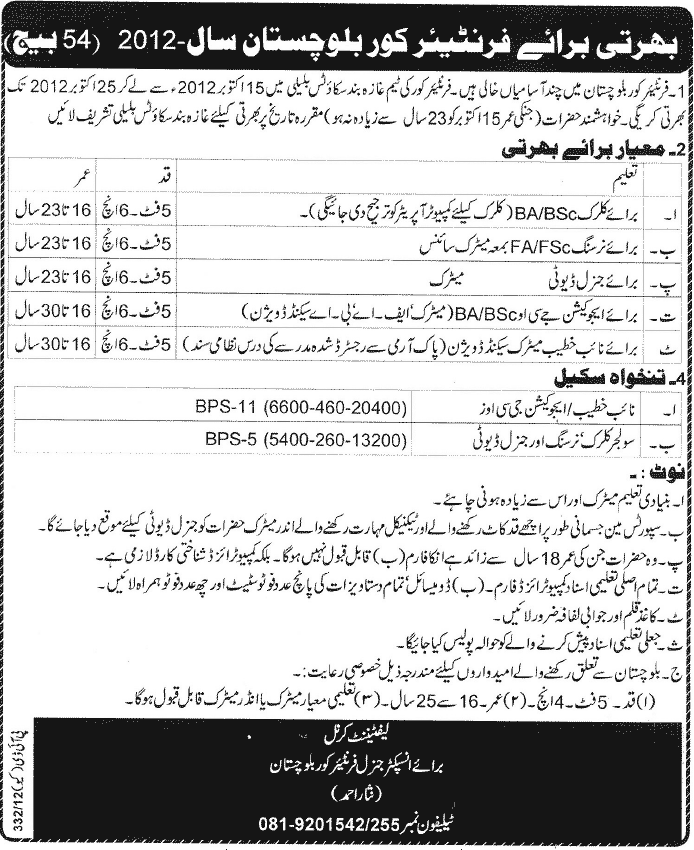 بھرتی برائے فرنٹیئر کور بلوچستان سال-2012 (54 بیج)
1۔ فرنٹیئر کور بلوچستان میں چند آسامیاں خالی ہیں۔ فرنٹیئر کور کی ٹیم غازہ بند سکاؤٹس بلیلی میں 15 اکتوبر 2012ء سے لے کر 25 اکتوبر 2012 تک
بھرتی کریگی۔ خواہشمند حضرات (جنکی عمر 15 اکتوبر کو 23 سال سے زیادہ نہ ہو) مقررہ تاریخ پر بھرتی کیلئے غازہ بند سکاؤٹس بلیلی تشریف لائیں
2۔ معیار برائے بھرتی
تعلیم قد عمر
ا۔ برائے کلرک BA/BSc (کلرک کیلئے کمپیوٹر آپریٹر کو ترجیح دی جائیگی)۔ 5 فٹ۔ 6 انچ 16 تا 23 سال
ب۔ برائے نرسنگ FA/FSc بمعہ میٹرک سائنس 5 فٹ۔ 6 انچ 16 تا 23 سال
پ۔ برائے جنرل ڈیوٹی میٹرک 5 فٹ۔ 6 انچ 16 تا 23 سال
ت۔ برائے ایجوکیشن جے سی او BA/BSc (میٹرک، ایف۔ اے، بی۔ اے سیکنڈ ڈویژن) 5 فٹ۔ 6 انچ 16 تا 30 سال
ٹ۔ برائے نائب خطیب میٹرک سیکنڈ ڈویژن (پاک آرمی سے رجسٹرڈ شدہ مدرسے کی درس نظامی سند) 5 فٹ۔ 6 انچ 16 تا 30 سال
4۔ تنخواہ سکیل
ا۔ نائب خطیب/ایجوکیشن جے سی اوز BPS-11 (6600-460-20400)
ب۔ سولجر کلرک، نرسنگ اور جنرل ڈیوٹی BPS-5 (5400-260-13200)
نوٹ:۔
ا۔ بنیادی تعلیم میٹرک اور اس سے زیادہ ہونی چاہئے۔
ب۔ سپورٹس مین جسمانی طور پر اچھے قد کاٹ رکھنے والے اور ٹیکنیکل مہارت رکھنے والے انڈر میٹرک حضرات کو جنرل ڈیوٹی کیلئے موقع دیا جائے گا۔
پ۔ وہ حضرات جن کی عمر 18 سال سے زائد ہے انکا فارم (ب) قابل قبول نہیں ہوگا۔ بلکہ کمپیوٹرائزڈ شناختی کارڈ لازمی ہے۔
ت۔ تمام اصلی تعلیمی اسناد کمپیوٹرائزڈ فارم۔ (ب) ڈومیسائل، تمام دستاویزات کی پانچ عدد فوٹوسٹیٹ اور چھ عدد فوٹو ہمراہ لائیں۔
ٹ۔ کاغذ قلم اور جوابی لفافہ ضرور لائیں۔
ث۔ جعلی تعلیمی اسناد پیش کرنے والے کو حوالہ پولیس کیا جائیگا۔
ج۔ بلوچستان سے تعلق رکھنے والے امیدواروں کیلئے مندرجہ ذیل خصوصی رعایت:۔
(۱) قد۔ 5 فٹ۔ 4 انچ۔ (۲) عمر۔ 16 سے 25 سال۔ (۳) تعلیمی معیار میٹرک یا انڈر میٹرک قابل قبول ہوگا۔
لیفٹیننٹ کرنل
برائے انسپکٹر جنرل فرنٹیئر کور بلوچستان
(نثار احمد)
ٹیلیفون نمبر 081-9201542/255
پی آئی ڈی (کیو) 332/12